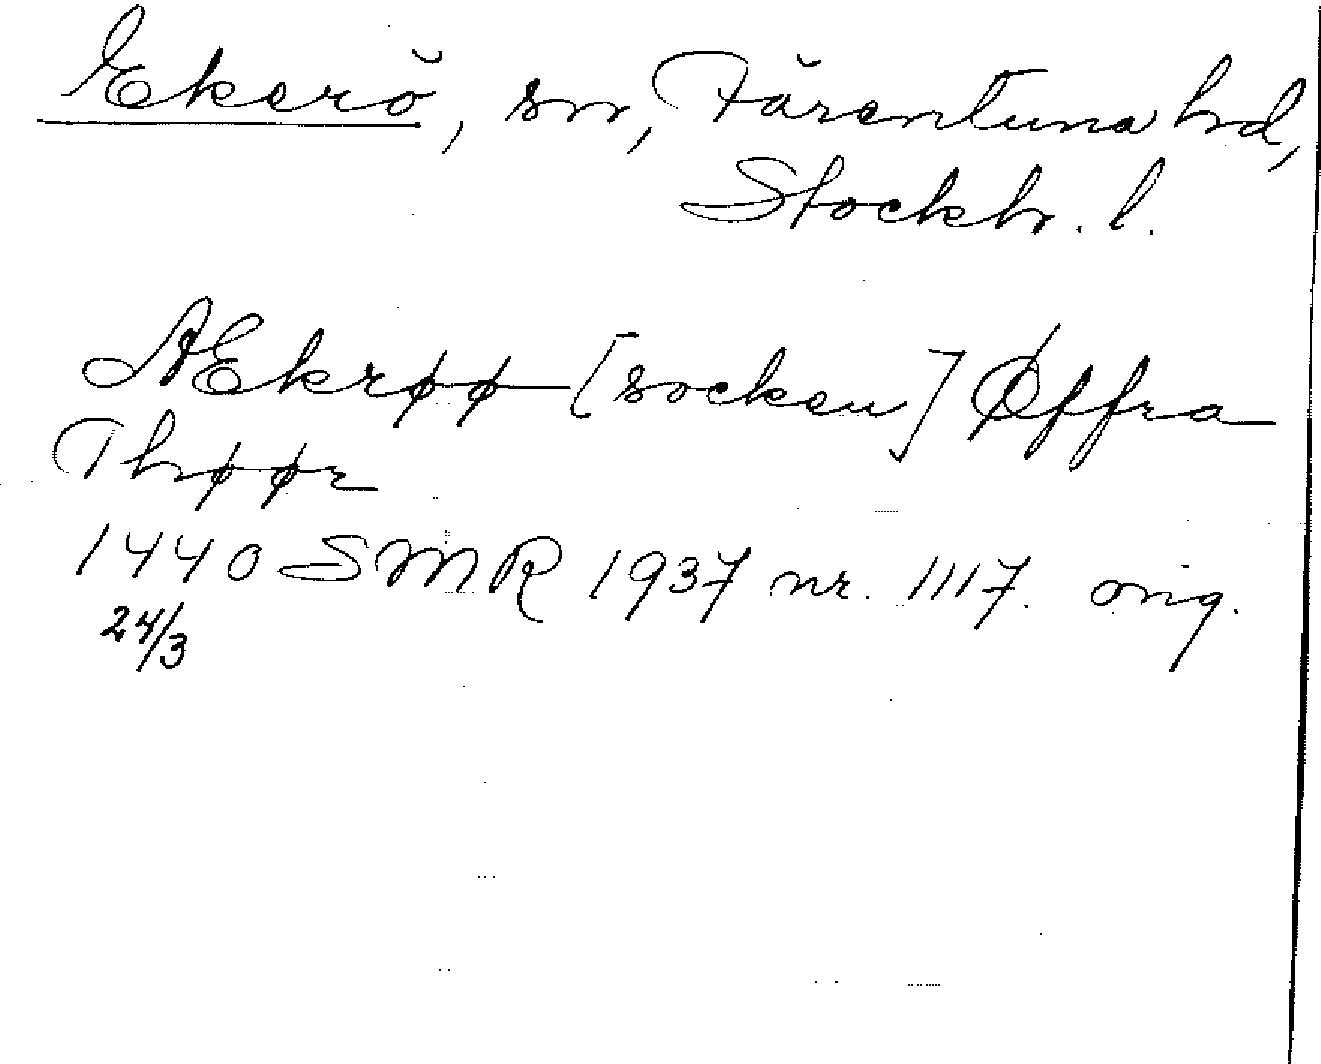 Ekerö, sn, Färentuna hd,
Stockh. l.
AEkrøø [socken] Øffra
Thøør
1440 SMR 1937 nr. 1117. orig.
24/3